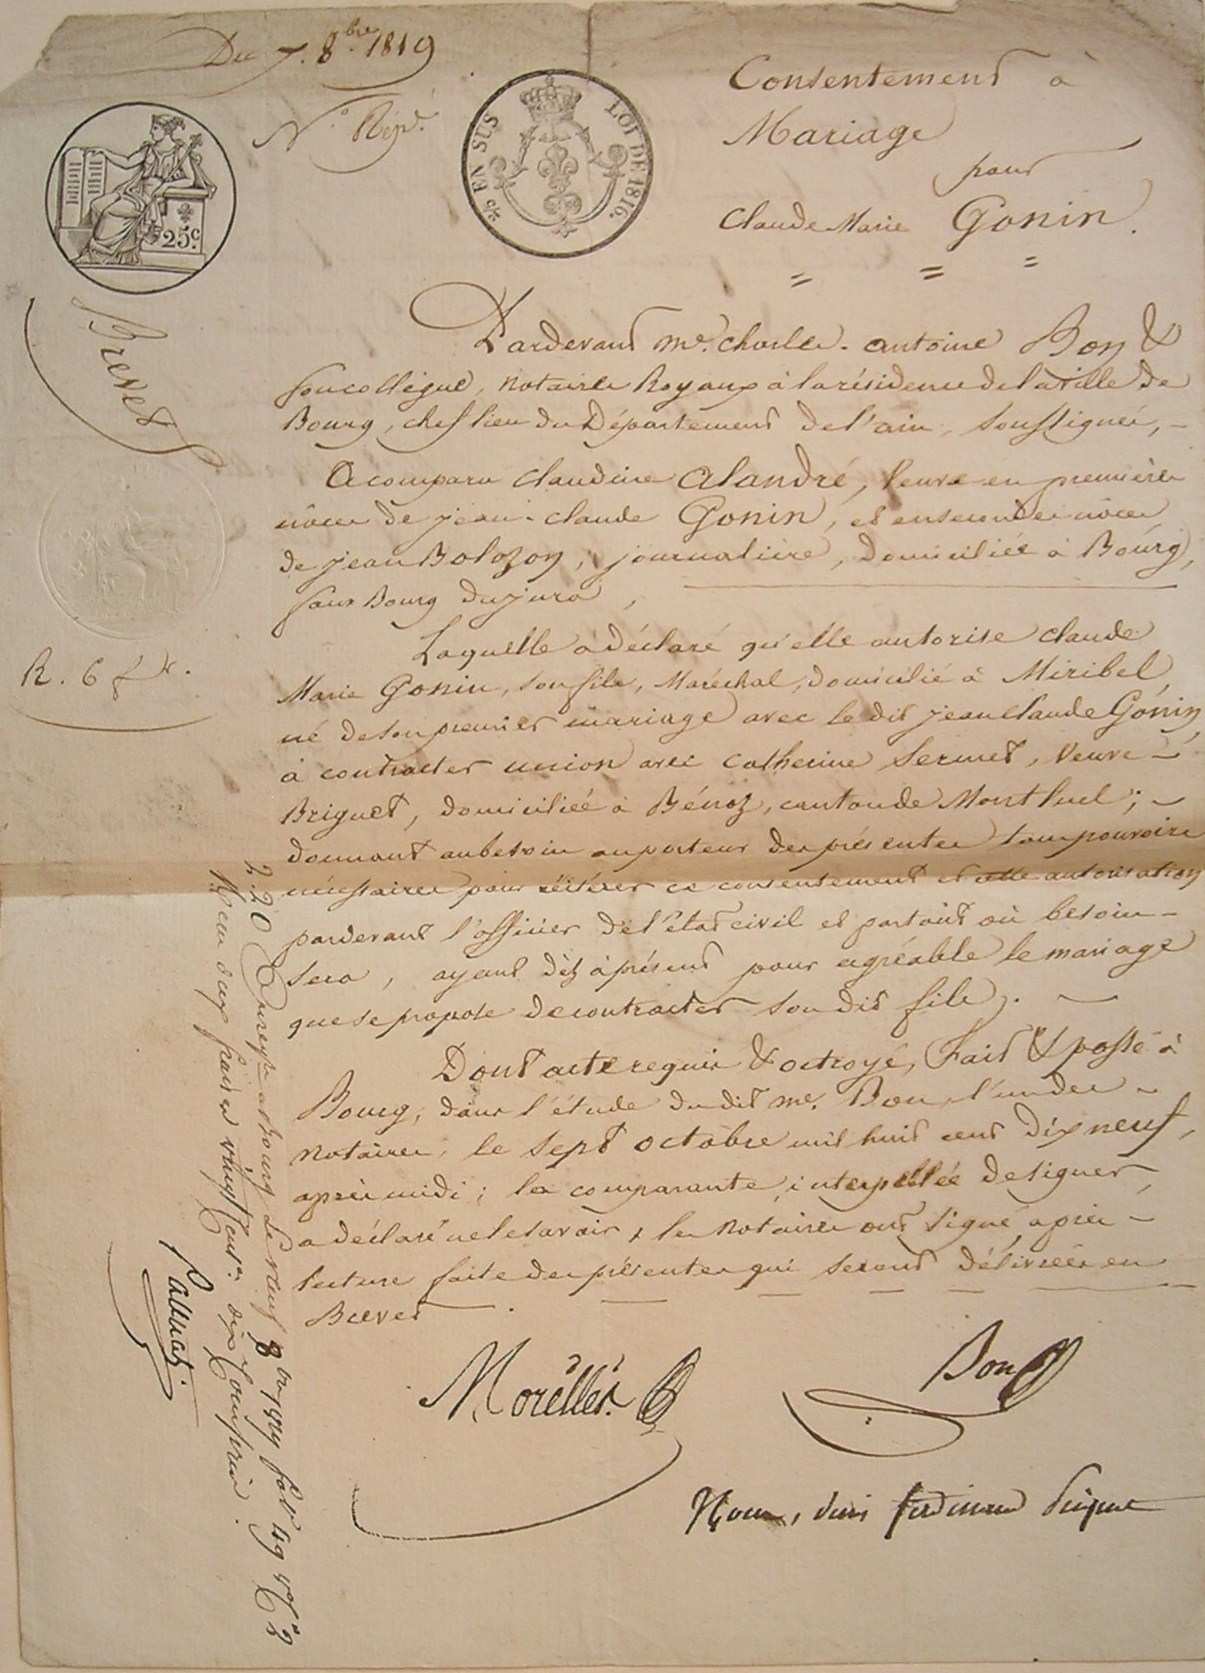 Du 7. 8bre 1819
N.° Rép.re
25c
2/5 EN SUS
LOI DE 1816.
Consentement à
Mariage
pour
Claude Marie Gonin.
Brevet
Pardevant me. Charles-antoine Bon &
son collégue, notaires Royaux à la résidence de la ville de
Bourg, chef lieu du Département de l'ain, soussignés,
A comparu Claudine Alandré, veuve en premières
nôces de jean-claude Gonin, et en secondes nôces
de jean Bolozon, journalière, domiciliée à Bourg,
faux Bourg du jura,
Laquelle a déclaré qu'elle autorise claude
Marie Gonin, son fils, Maréchal, domicilié à Miribel,
né de son premier mariage avec le dit jean claude Gonin,
à contracter union avec Catherine Sermet, veuve
Briguet, domiciliée à Bénoz, canton de Montluel;
donnant au besoin au porteur des présentes tous pouvoirs
nécessaires pour réitérer ce consentement et cette autorisation
pardevant l'officier de l'état civil et partout où besoin
sera, ayant dèz à présent pour agréable le mariage
que se propose de contracter son dit fils.
Dont acte requis & octroyé, Fait & passé à
Bourg, dans l'étude du dit me. Bon, l'un des
notaires, le sept octobre mil huit cent dix neuf,
après midi; la comparante, interpellée de signer,
a déclaré ne le savoir, les notaires ont signé, après
lecture faite des présentes qui seront délivrées en
Brevet.
R. 6 f
220 Enreg.té à Bourg le neuf 8bre 1819 folio 49 v°
Reçu deux francs vingt cent.es dix compris.
Morellet
Bon
Nous,